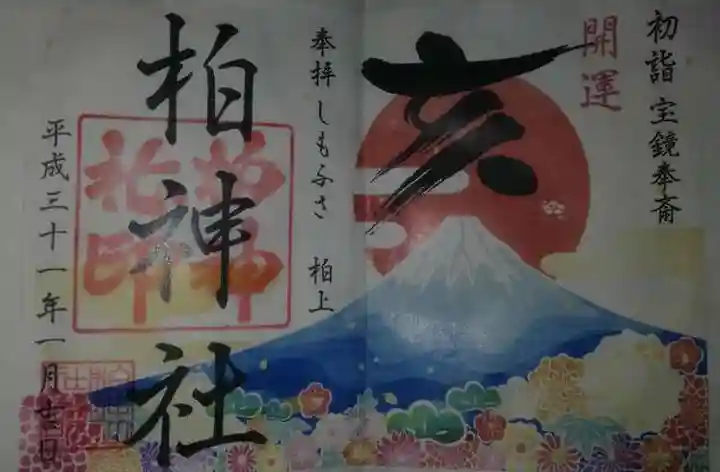 初詣 宝鏡奉斎
開運
亥
奉拝 しもふさ 柏上
柏神社
柏神社印
平成三十一年一月日